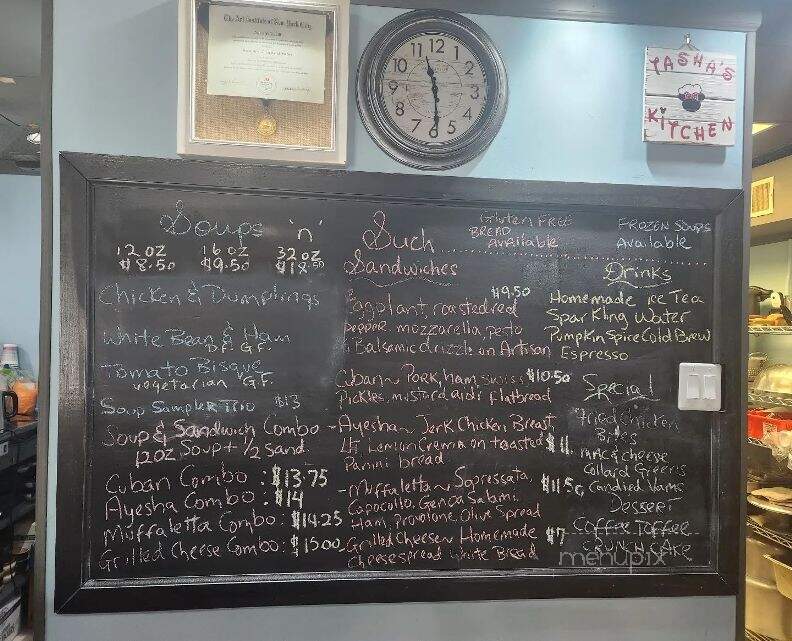 The Art Institute of New York City
12
11
1
10
2
9
3
8
4
7
5
6
TASHA'S
KiTCHEN
Soups 'n'
12 OZ 16 OZ 32 OZ
$8.50 $9.50 $18.50
Chicken & Dumplings
White Bean & Ham
D.F. G.F.
Tomato Bisque
vegetarian G.F.
Soup Sampler Trio $13
Soup & Sandwich Combo
12oz Soup + 1/2 Sand.
Cuban Combo : $13.75
Ayesha Combo : $14
Muffaletta Combo : $14.25
Grilled Cheese Combo : $15.00
Such
Gluten FREE
BREAD
Available
Sandwiches
$9.50
Eggplant, roasted red
pepper mozzarella, pesto
& Balsamic drizzle on Artisan
Cuban ~ Pork, ham, swiss $10.50
Pickles, mustard aioli flatbread
- Ayesha ~ Jerk Chicken Breast,
Lemon Crema on toasted $11
Panini bread
- Muffaletta ~ Sopressata, $11.50
Capocollo, Genoa Salami
Ham, provolone, Olive Spread
- Grilled Cheese ~ Homemade $7
Cheese spread White Bread
FROZEN SOUPS
Available
Drinks
Homemade ice Tea
Sparkling Water
Pumpkin Spice Cold Brew
Espresso
Special
Fried Chicken
Bites
Mac & Cheese
Collard Greens
Candied Yams
Dessert
Coffee Toffee
CRUNCH CAKE
menupix